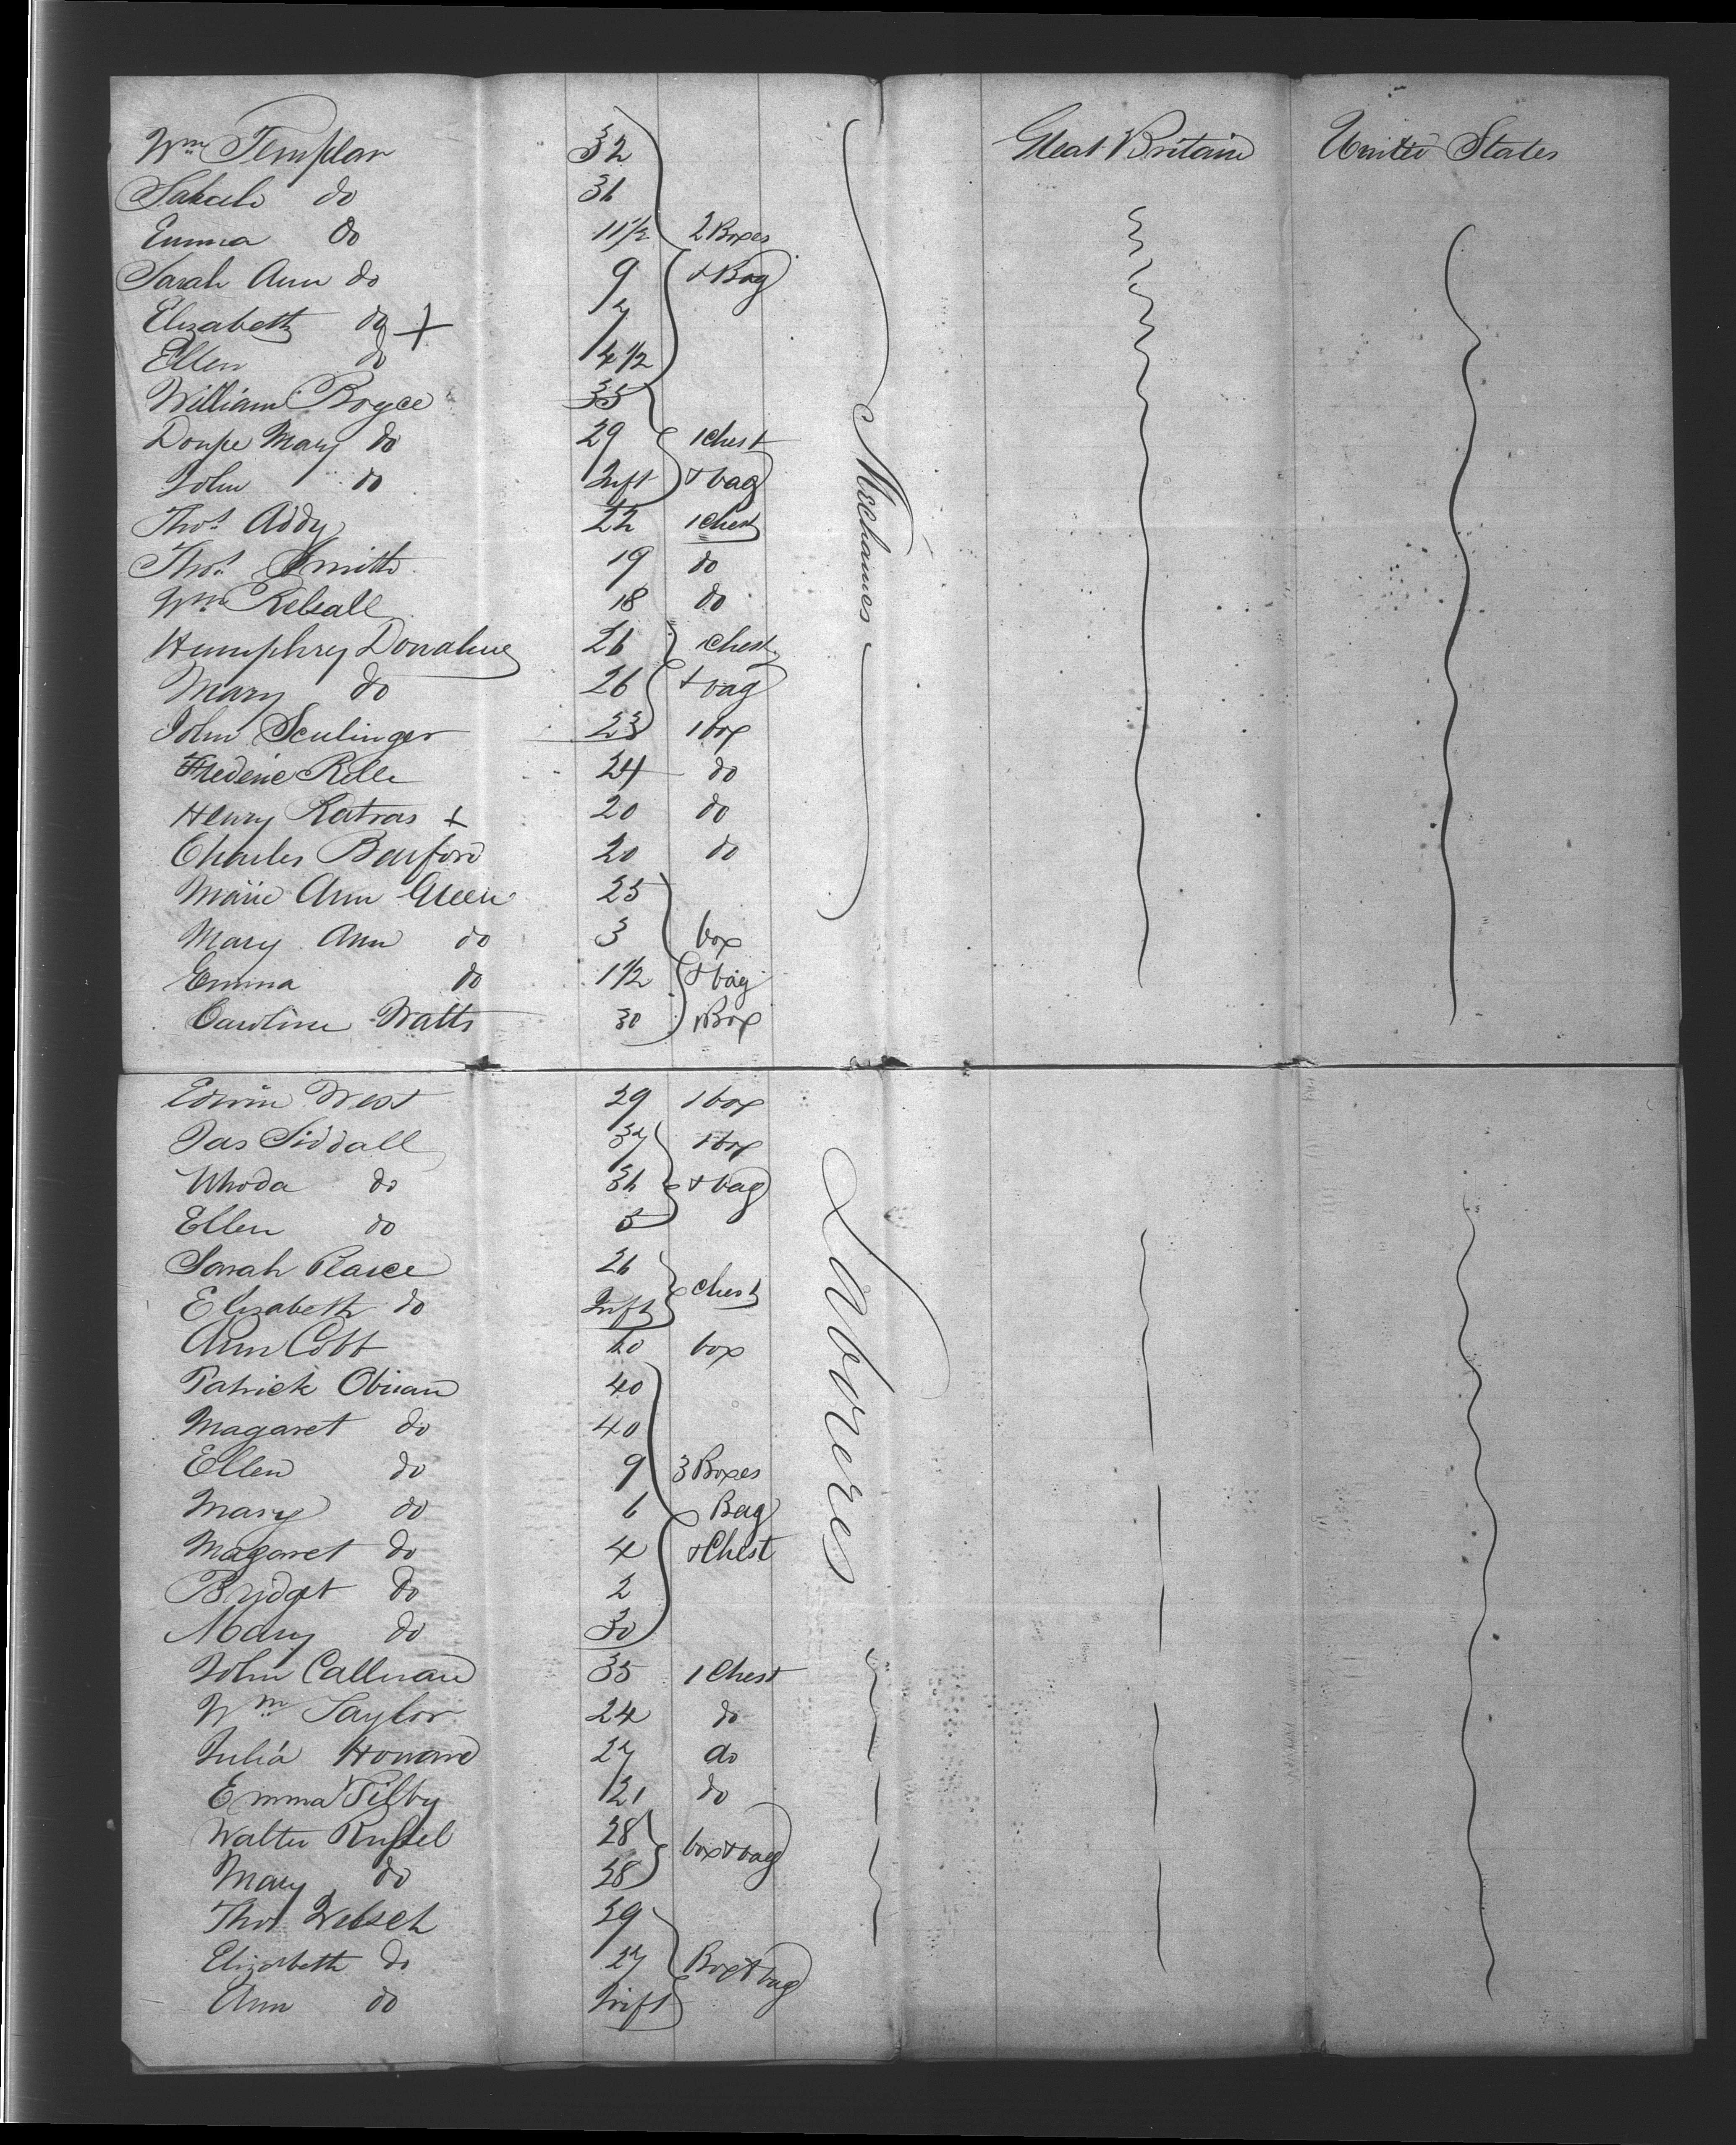 Wm Templar 32 Great Britain United States
Sarah do 36
Emma do 11 1/2 2 Boxes
Sarah Ann do 9 + Bag
Elizabeth do + 7
Ellen do 4 1/2
William Boyce 35
Doupe Mary do 29 1 Chest
John do Inft + bag
Thos Addy 22 1 Chest
Thos Smith 19 do
Wm Kelsall 18 do
Mechanics
Humphrey Donahue 26 1 Chest
Mary do 26 + bag
John Sculinger 23 1 box
Frederic Relle 24 do
Henry Ratras + 20 do
Charles Barford 20 do
Marie Ann Green 25
Mary Ann do 3 box
Emma do 1 1/2 + bag
Caroline Watts 30 1 Box
Edwin West 29 1 box
Jas Siddall 37 1 box
Rhoda do 36 + bag
Ellen do 5
Sarah Pearce 26 Chest
Elizabeth do Inft
Ann Cobb 20 box
Laborers
Patrick Obrian 40
Magaret do 40
Ellen do 9 3 Boxes
Mary do 6 Bag
Magaret do 4 + Chest
Bridget do 2
Mary do 30
John Callinan 35 1 Chest
Wm Taylor 24 do
Julia Howard 27 do
Emma Pilby 21 do
Walter Russel 28 box + bag
Mary do 28
Thos Welsch 29
Elizabeth do 27 Box + bag
Ann do Inft